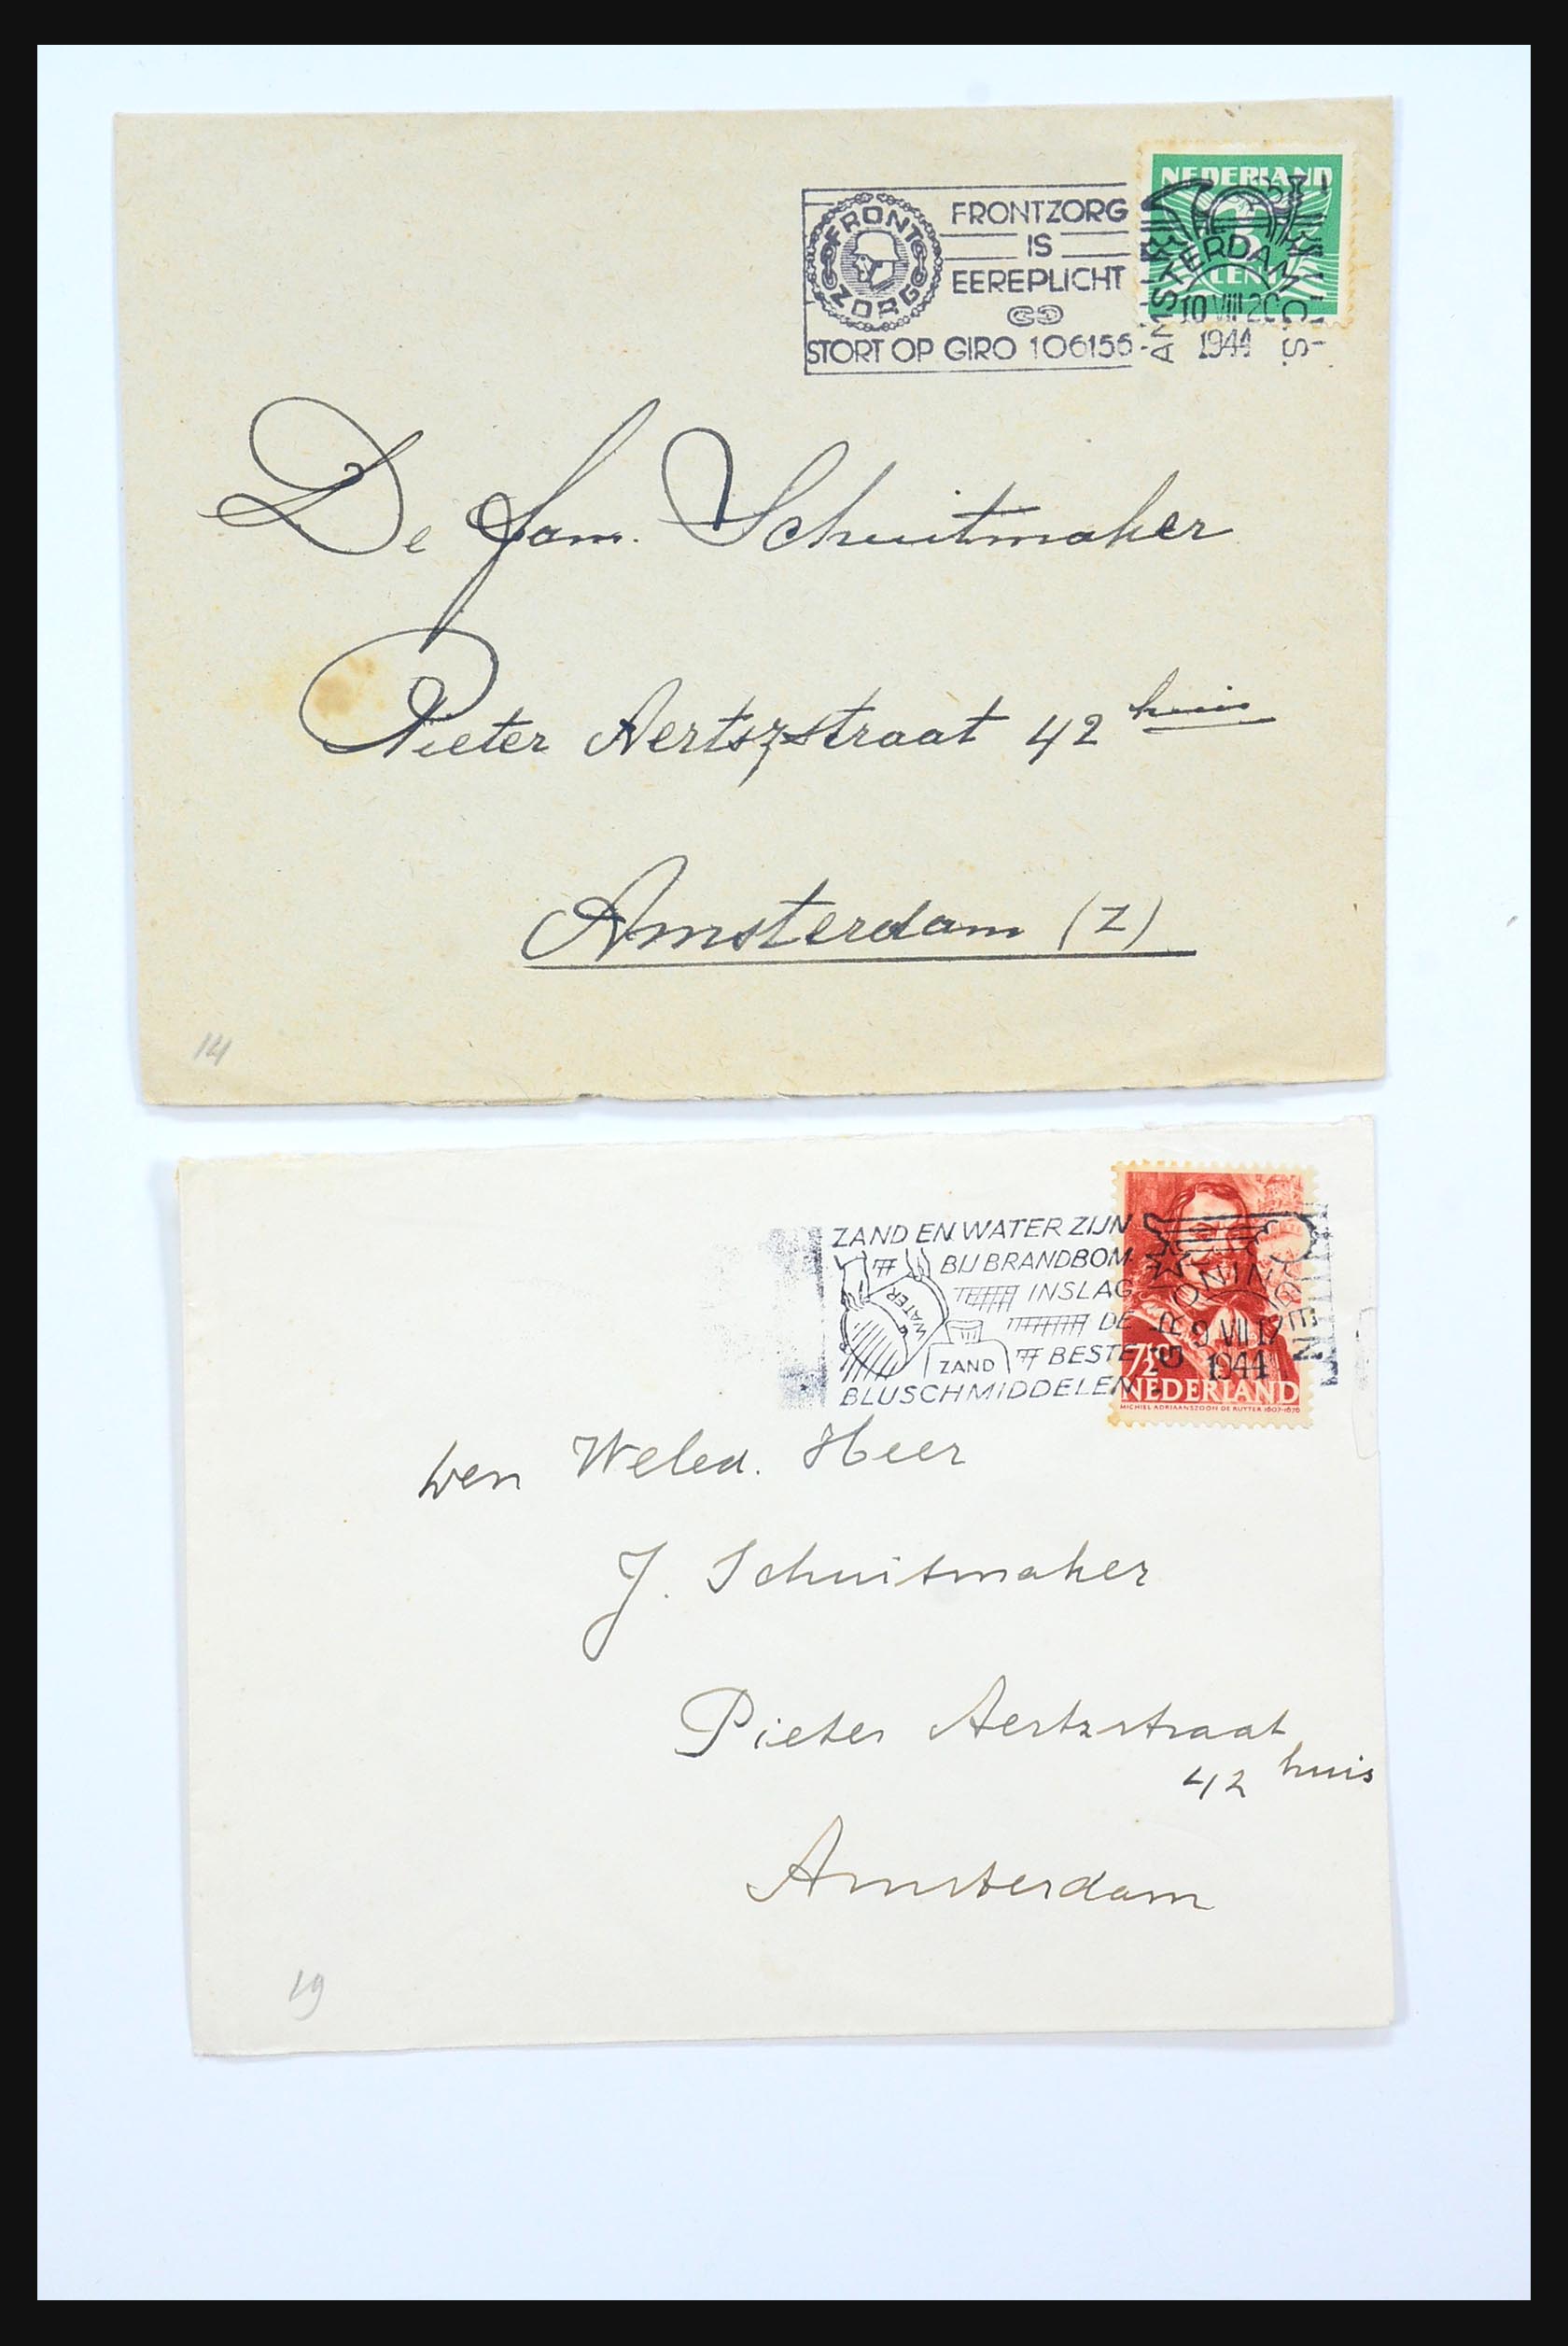 FRONT ZORG
FRONTZORG
IS
EEREPLICHT
STORT OP GIRO 106156
NEDERLAND
CENT
AMSTERDAM C.S.
10 VIII 20
1944
De fam. Schuitmaker
Pieter Aertszstraat 42 huis
Amsterdam (Z)
14
ZAND EN WATER ZIJN
BIJ BRANDBOM
INSLAG
DE
BESTE
BLUSCHMIDDELEN
WATER
ZAND
GRONINGEN
9 VII 17
1944
7½
NEDERLAND
MICHIEL ADRIAANSZOON DE RUYTER 1607-1676
den Weled. Heer
J. Schuitmaker
Pieter Aertzstraat
42 huis
Amsterdam
19